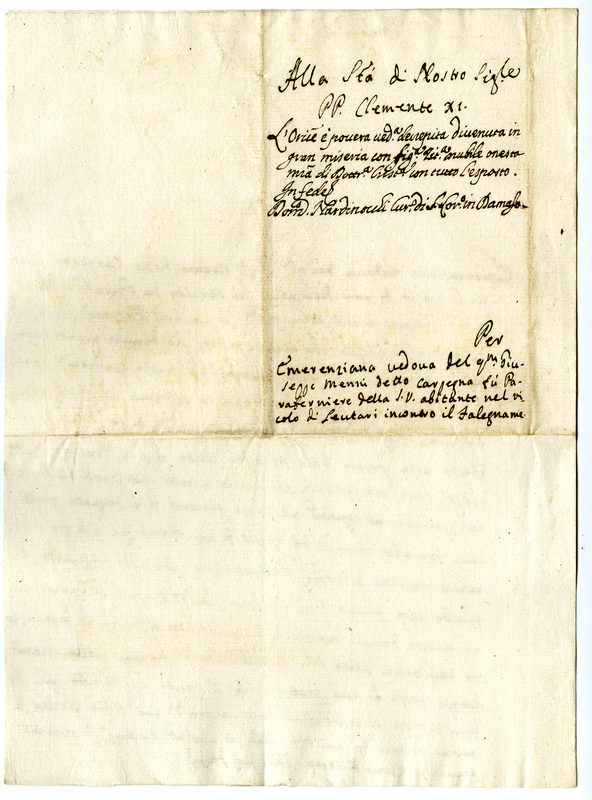 Alla Stà di Nostro Sigre
PP. Clemente XI.
L'Orice è povera ved.a decrepita divenuta in
gran miseria con figa nubile onesta
di Dottra Crista con tutto l'esposto.
In fede
Dom. Nardinocchi Cur. di S. Lor. in Damaso
Per
Emerenziana vedova del qm Giu-
seppe Menni detto Carpegna fù Pa-
rafreniere della S.V. abitante nel vi
colo di Leutari incontro il Falegname